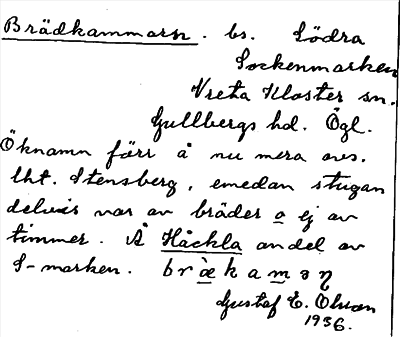 Brädkammarn. bs. Södra
Sockenmarken
Vreta Kloster sn.
Gullbergs hd. Ögl.
Öknamn förr å nu mera avs.
lht. Stensberg, emedan stugan
delvis var av bräder o ej av
timmer. Å Håckla andel av
S-marken.
Gustaf E. Olsson
1936.